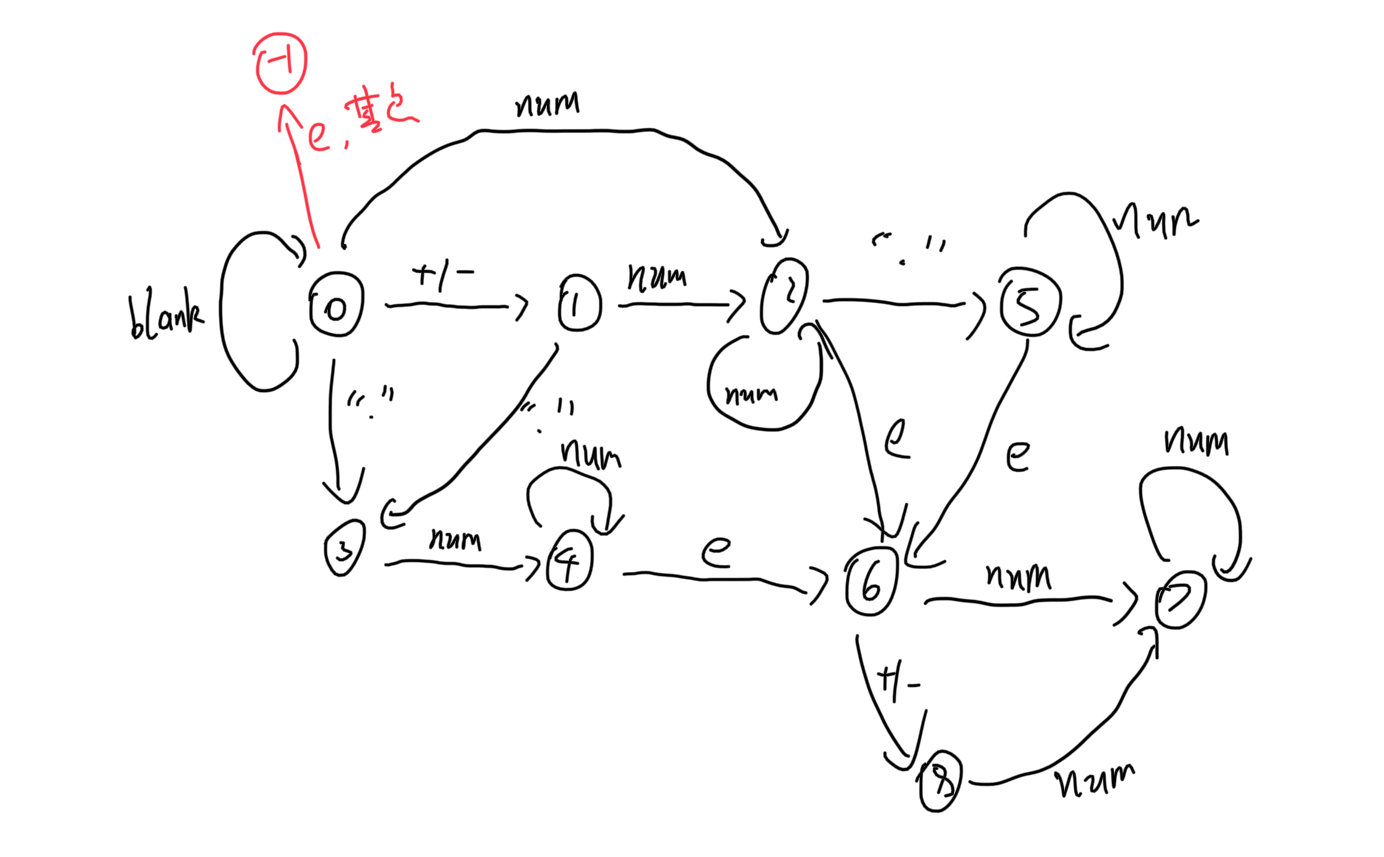 -1
e, 其它
num
blank
0
+/-
1
num
2
"."
5
num
num
"."
"."
e
e
3
num
4
num
e
6
num
7
num
+/-
8
num